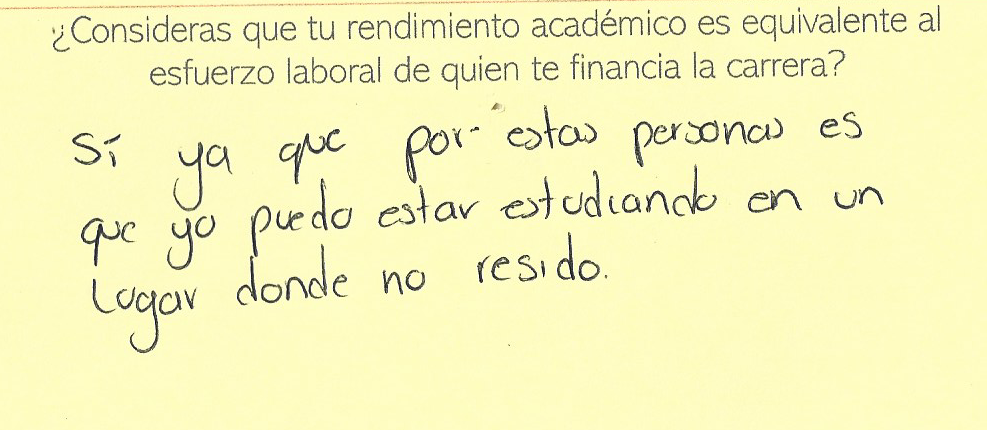 ¿Consideras que tu rendimiento académico es equivalente al
esfuerzo laboral de quien te financia la carrera?
Sí ya que por estas personas es
que yo puedo estar estudiando en un
Lugar donde no resido.